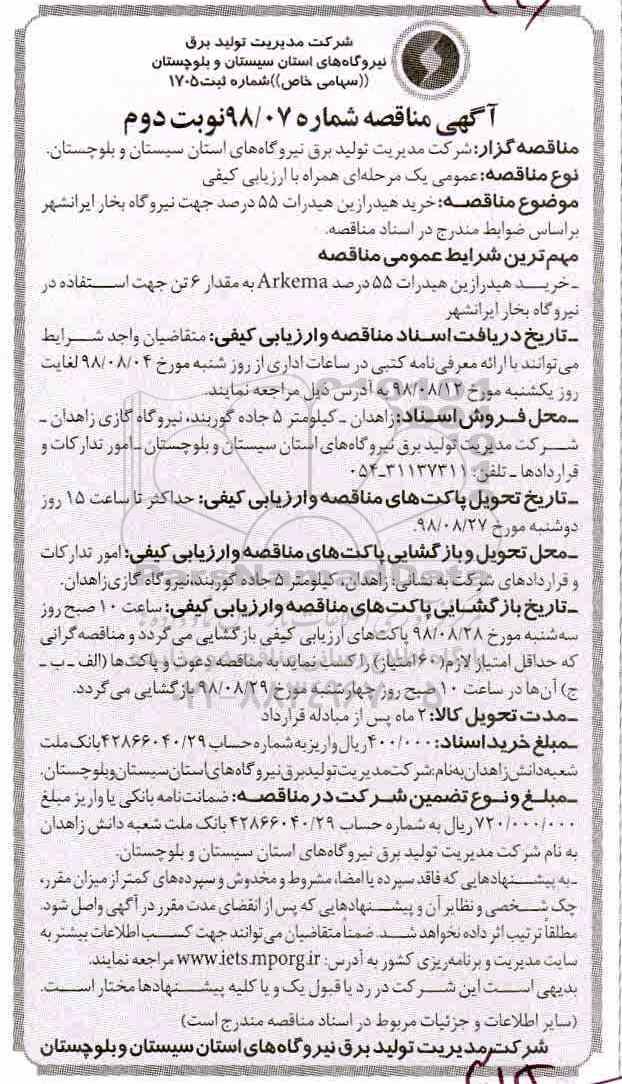 شرکت مدیریت تولید برق
نیروگاه‌های استان سیستان و بلوچستان
((سهامی خاص))شماره ثبت۱۷۰۵
آگهی مناقصه شماره ۹۸/۰۷نوبت دوم
مناقصه گزار: شرکت مدیریت تولید برق نیروگاه‌های استان سیستان و بلوچستان.
نوع مناقصه: عمومی یک مرحله‌ای همراه با ارزیابی کیفی
موضوع مناقصه: خرید هیدرازین هیدرات ۵۵ درصد جهت نیروگاه بخار ایرانشهر
براساس ضوابط مندرج در اسناد مناقصه.
مهم ترین شرایط عمومی مناقصه
ـ خرید هیدرازین هیدرات ۵۵ درصد Arkema به مقدار ۶ تن جهت استفاده در
نیروگاه بخار ایرانشهر
ـ تاریخ دریافت اسناد مناقصه وارزیابی کیفی: متقاضیان واجد شرایط
می‌توانند با ارائه معرفی‌نامه کتبی در ساعات اداری از روز شنبه مورخ ۹۸/۰۸/۰۴ لغایت
روز یکشنبه مورخ ۹۸/۰۸/۱۲ به آدرس ذیل مراجعه نمایند.
ـ محل فروش اسناد: زاهدان ـ کیلومتر ۵ جاده گوربند، نیروگاه گازی زاهدان ـ
شرکت مدیریت تولید برق نیروگاه‌های استان سیستان و بلوچستان ـ امور تدارکات و
قراردادها ـ تلفن: ۳۱۱۳۷۳۱۱-۰۵۴
ـ تاریخ تحویل پاکت‌های مناقصه وارزیابی کیفی: حداکثر تا ساعت ۱۵ روز
دوشنبه مورخ ۹۸/۰۸/۲۷.
ـ محل تحویل و بازگشایی پاکت‌های مناقصه وارزیابی کیفی: امور تدارکات
و قراردادهای شرکت به نشانی: زاهدان، کیلومتر ۵ جاده گوربند،نیروگاه گازی زاهدان.
ـ تاریخ بازگشایی پاکت‌های مناقصه وارزیابی کیفی: ساعت ۱۰ صبح روز
سه‌شنبه مورخ ۹۸/۰۸/۲۸ پاکت‌های ارزیابی کیفی بازگشایی می‌گردد و مناقصه‌گرانی
که حداقل امتیاز لازم(۶۰امتیاز) را کسب نماید به مناقصه دعوت و پاکت‌ها (الف ـ ب ـ
ج) آن‌ها در ساعت ۱۰ صبح روز چهارشنبه مورخ ۹۸/۰۸/۲۹ بازگشایی می‌گردد.
ـ مدت تحویل کالا: ۲ ماه پس از مبادله قرارداد
ـ مبلغ خرید اسناد: ۴۰۰/۰۰۰ ریال واریز به شماره حساب ۴۲۸۶۶۰۴۰/۲۹ بانک ملت
شعبه دانش زاهدان به نام: شرکت مدیریت تولید برق نیروگاه‌های استان سیستان و بلوچستان.
ـ مبلغ و نوع تضمین شرکت در مناقصه: ضمانت‌نامه بانکی یا واریز مبلغ
۷۲۰/۰۰۰/۰۰۰ ریال به شماره حساب ۴۲۸۶۶۰۴۰/۲۹ بانک ملت شعبه دانش زاهدان
به نام شرکت مدیریت تولید برق نیروگاه‌های استان سیستان و بلوچستان.
ـ به پیشنهادهایی که فاقد سپرده یا امضا، مشروط و مخدوش و سپرده‌های کمتر از میزان مقرر،
چک شخصی و نظایر آن و پیشنهادهایی که پس از انقضای مدت مقرر در آگهی واصل شود.
مطلقاً ترتیب اثر داده نخواهد شد. ضمناً متقاضیان می‌توانند جهت کسب اطلاعات بیشتر به
سایت مدیریت و برنامه‌ریزی کشور به آدرس: www.iets.mporg.ir مراجعه نمایند.
بدیهی است این شرکت در رد یا قبول یک و یا کلیه پیشنهادها مختار است.
(سایر اطلاعات و جزئیات مربوط در اسناد مناقصه مندرج است)
شرکت مدیریت تولید برق نیروگاه‌های استان سیستان و بلوچستان